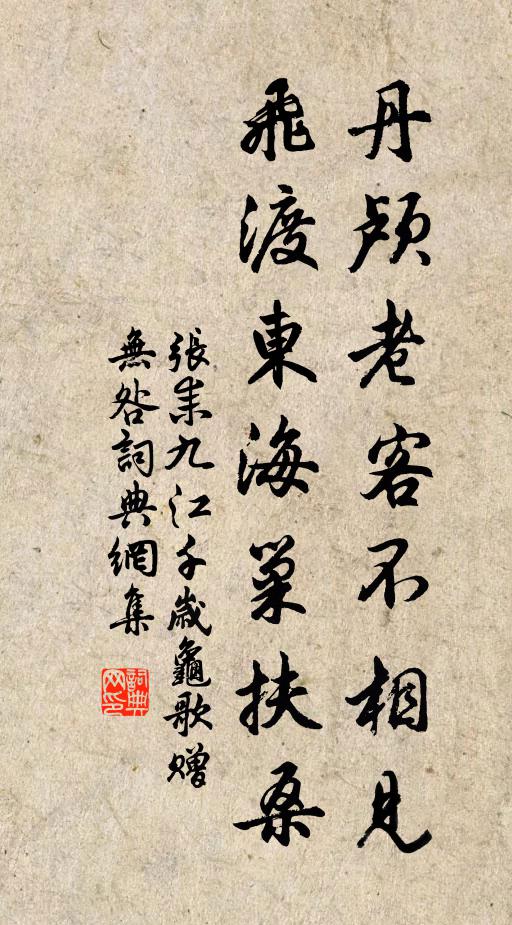 丹颅老客不相見
飛渡東海巢扶桑
張耒九江千歲龜歌贈
無咎詞典網集
詞典网印